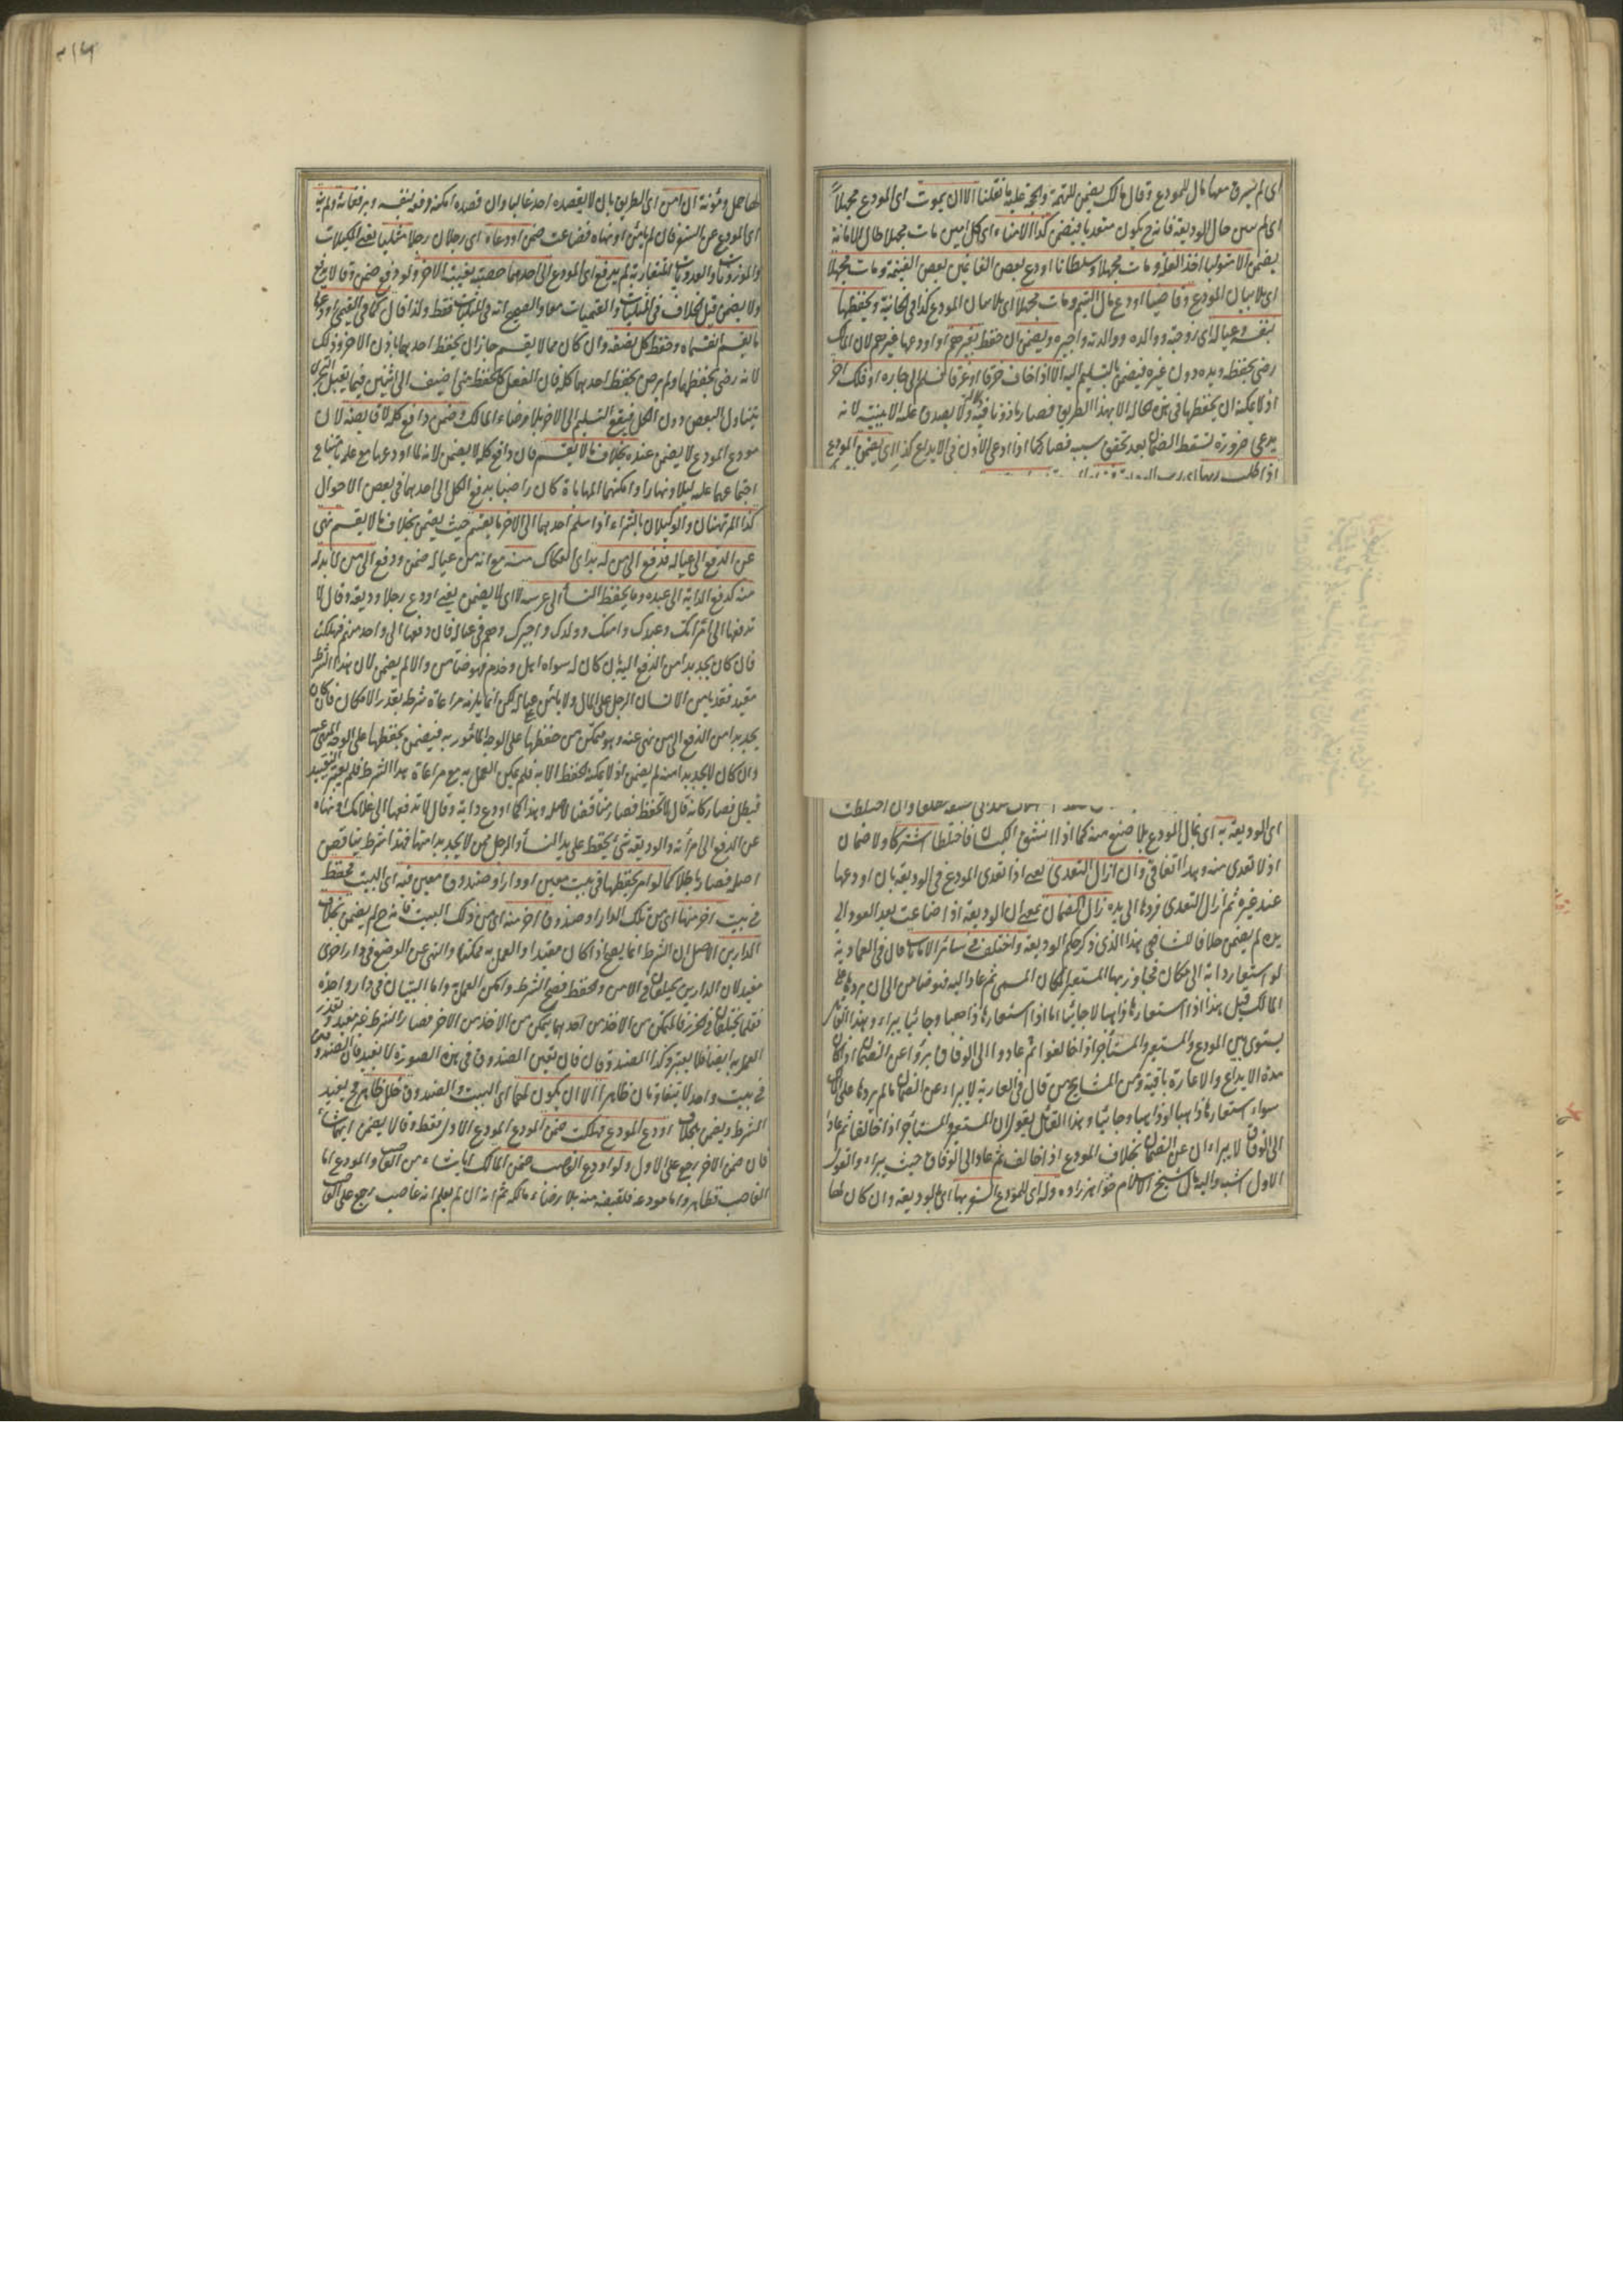 اى لم يسرق معها مال للمودع وقال مالك يضمن للتهمة والحجة عليه ما نقلنا الا ان يموت اى المودع مجهلا
اى لم يبين حال الوديعة فانه ح يكون متعديا فيضمن كذا الامناء اى كل امين مات مجهلا حال الامانة
يضمن الا متوليا اخذ الغلة ومات مجهلا وسلطانا اودع بعض الغانمين بعض الغنيمة ومات مجهلا
اى بلا بيان المودع وقاضيا اودع مال اليتيم ومات مجهلا اى بلا بيان المودع كذا فى الخانية ويحفظها
بنفسه وعياله اى زوجته وولده ووالديه واجيره ويضمن ان حفظ بغيرهم او اودعها غيرهم لان المالك
رضى بحفظه ويده دون غيره فيضمن بالتسليم اليه الا اذا خاف حرقا او غرقا فسلم الى جاره او فلك آخر
اذ لا يمكنه ان يحفظها فى هذه الحالة الا بهذا الطريق فصار مأذونا فيه ولا يصدق عليه الا ببينة لانه
يدعى ضرورة تسقط الضمان بعد تحقق سببه فصار كما اذا ادعى الاذن فى الايداع كذا اى يضمن المودع
اذا طلب ربها اى رب الوديعة
وان اختلطت
اى الوديعة به اى بمال المودع بلا صنع منه كما اذا انشق الكيسان فاختلطا اشتركا ولا ضمان
اذ لا تعدى منه وهذا اتفاقى وان ازال التعدى يعنى اذا تعدى المودع فى الوديعة بان اودعها
عند غيره ثم ازال التعدى فردها الى يده زال الضمان بمعنى ان الوديعة اذا ضاعت بعد العود الى
يده لم يضمن خلافا للشافعى هذا الذى ذكر حكم الوديعة واختلف فى سائر الامانات قال فى العمادية
لو استعار دابة الى مكان فجاوز بها المستعير المكان المسمى ثم عاد اليه فهو ضامن الى ان يردها على
المالك قيل هذا اذا استعارها ذاهبا لا جائيا اما اذا استعارها ذاهبا وجائيا يبراء وهذا القائل
يسوى بين المودع والمستعير والمستأجر اذا خالفوا ثم عادوا الى الوفاق برؤا عن الضمان اذا كان
مدة الايداع والاعارة باقية ومن المشايخ من قال فى العارية لا يبراء عن الضمان ما لم يردها على المالك
سواء استعارها ذاهبا او ذاهبا وجائيا وهذا القائل يقول ان المستعير والمستأجر اذا خالفا ثم عادا
الى الوفاق لا يبراءان عن الضمان بخلاف المودع اذا خالف ثم عاد الى الوفاق حيث يبراء والقول
الاول اشبه واليه مال شيخ الاسلام خواهرزاده وله اى للمودع السفر بها اى بالوديعة وان كان لها
لها حمل ومؤنة ان امن اى الطريق بان لا يقصده احد غالبا وان قصده امكنه دفعه بنفسه وبرفقائه ولم ينه
اى المودع عن السفر فان لم يأمن او نهاه فضاعت ضمن اودعاه اى رجلان رجلا مثليا يعنى المكيلات
والموزونات والعدديات المتقاربة لم يدفع اى المودع الى احدهما حصته بغيبة الاخر ولو دفع ضمن وقالا يدفع
ولا يضمن قيل الخلاف فى المثليات والقيميات معا والصحيح انه فى المثليات فقط ولذا قال كما فى القيمى اودعا
ما يقسم اقتسماه وحفظ كل نصفه وان كان مما لا يقسم جاز ان يحفظ احدهما باذن الاخر وذلك
لانه رضى بحفظهما ولم يرض بحفظ احدهما كله فان الفعل كالحفظ متى اضيف الى اثنين فيما يقبل التجزى
يتناول البعض دون الكل فيقع التسليم الى الاخر بلا رضاء المالك وضمن دافع كله لا قابضه لان
مودع المودع لا يضمن عنده بخلاف ما لا يقسم فان دافع كله لا يضمن لانه لما اودعهما مع علمه بامتناع
اجتماعهما عليه ليلا ونهارا وامكنهما المهاياة كان راضيا بدفع الكل الى احدهما فى بعض الاحوال
كذا المرتهنان والوكيلان بالشراء اذا سلم احدهما الى الاخر ما يقسم حيث يضمن بخلاف ما لا يقسم نهى
عن الدفع الى عياله فدفع الى من له بد اى انفكاك منه مع انه من عياله ضمن ودفع الى من لا بد له
منه كدفع الدابة الى عبده وما يحفظه النساء الى عرسه لا اى لا يضمن يعنى اودع رجلا وديعة وقال لا
تدفعها الى امرأتك وعبدك وامتك وولدك واجيرك وهم فى عياله فان دفعها الى واحد منهم فهلكت
فان كان يجد بدا من الدفع اليه بان كان له سواه اهل وخدم فهو ضامن والا لم يضمن لان هذا الشرط
مفيد فقد يأمن الانسان الرجل على المال ولا يأمن عياله لكن انما يلزمه مراعاة شرطه بقدر الامكان فان كان
يجد بدا من الدفع الى من نهى عنه وهو متمكن من حفظها على الوجه المأمور به فيضمن بحفظها على الوجه المنهى عنه
وان كان لا يجد بدا منه لم يضمن اذ لا يمكنه الحفظ الا به فلم يمكن العمل به مع مراعاة هذا الشرط فلم يعتبر التقييد
فبطل فصار كانه قال لا تحفظ فصار مناقضا لاصله وهذا كما اودع دابة وقال لا تدفعها الى غلامك او نهاه
عن الدفع الى امرأته والوديعة شئ يحفظ على يد النساء والرجل ممن لا يجد بدا منها فهذا شرط يناقض
اصله فصار باطلا كما لو امر بحفظها فى بيت معين او دار او صندوق معين فيه اى البيت فحفظ
فى بيت اخر منها اى من تلك الدار او صندوق اخر منه اى من ذلك البيت فانه ح لم يضمن بخلاف
الدارين الاصل ان الشرط انما يصح اذا كان مفيدا والعمل به ممكنا والنهى عن الوضع فى دار اخرى
مفيد لان الدارين يختلفان فى الامن والحفظ فصح الشرط وامكن العمل به واما البيتان فى دار واحدة
فقلما يختلفان فى الحرز فالمتمكن من الاخذ من احدهما يتمكن من الاخذ من الاخر فصار الشرط غير مفيد وتعذر
العمل به ايضا فلا يعتبر وكذا الصندوقان فان تعين الصندوق فى هذه الصورة لا يفيد فان الصندوقين
فى بيت واحد لا يتفاوتان ظاهرا الا ان يكون لهما اى البيت والصندوق خلل ظاهر فح يفيد
الشرط ويضمن بخلافه اودع المودع فهلكت ضمن المودع المودع الاول فقط وقالا يضمن ايهما شاء
فان ضمن الاخر رجع على الاول ولو اودع الغاصب ضمن المالك ايا شاء من الغاصب والمودع اما
الغاصب فظاهر واما مودعه فلقبضه منه بلا رضاء مالكه ثم انه ان لم يعلم انه غاصب رجع على الغاصب